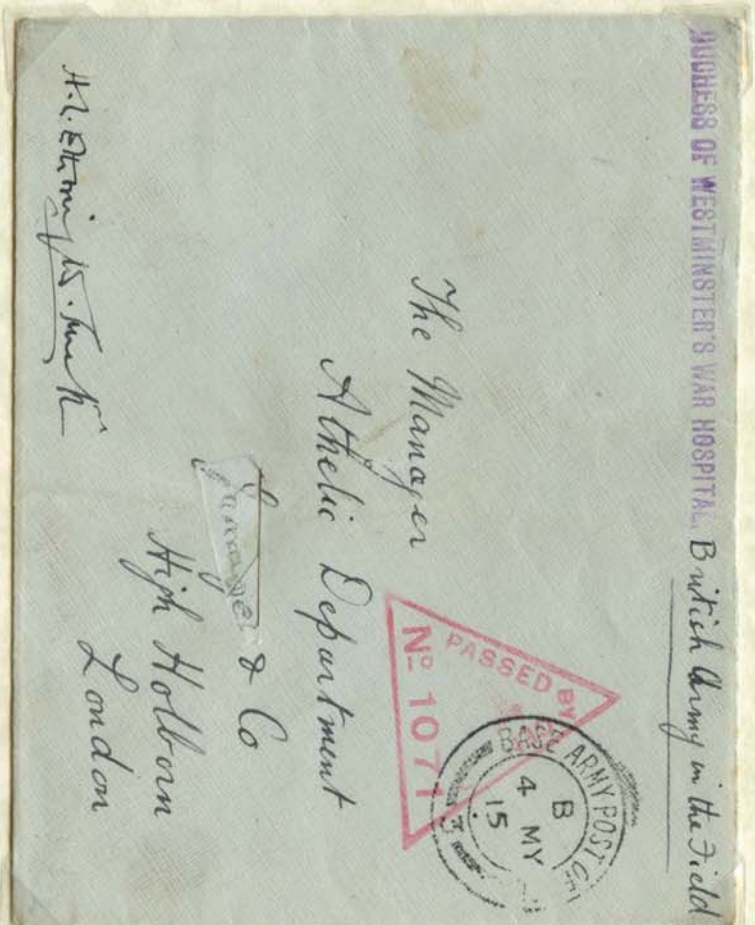 DUCHESS OF WESTMINSTER'S WAR HOSPITAL. British Army in the Field
PASSED BY
Nº 1071
BASE ARMY POST
B
4 MY
15
The Manager
Athelic Department
& Co
High Holborn
London